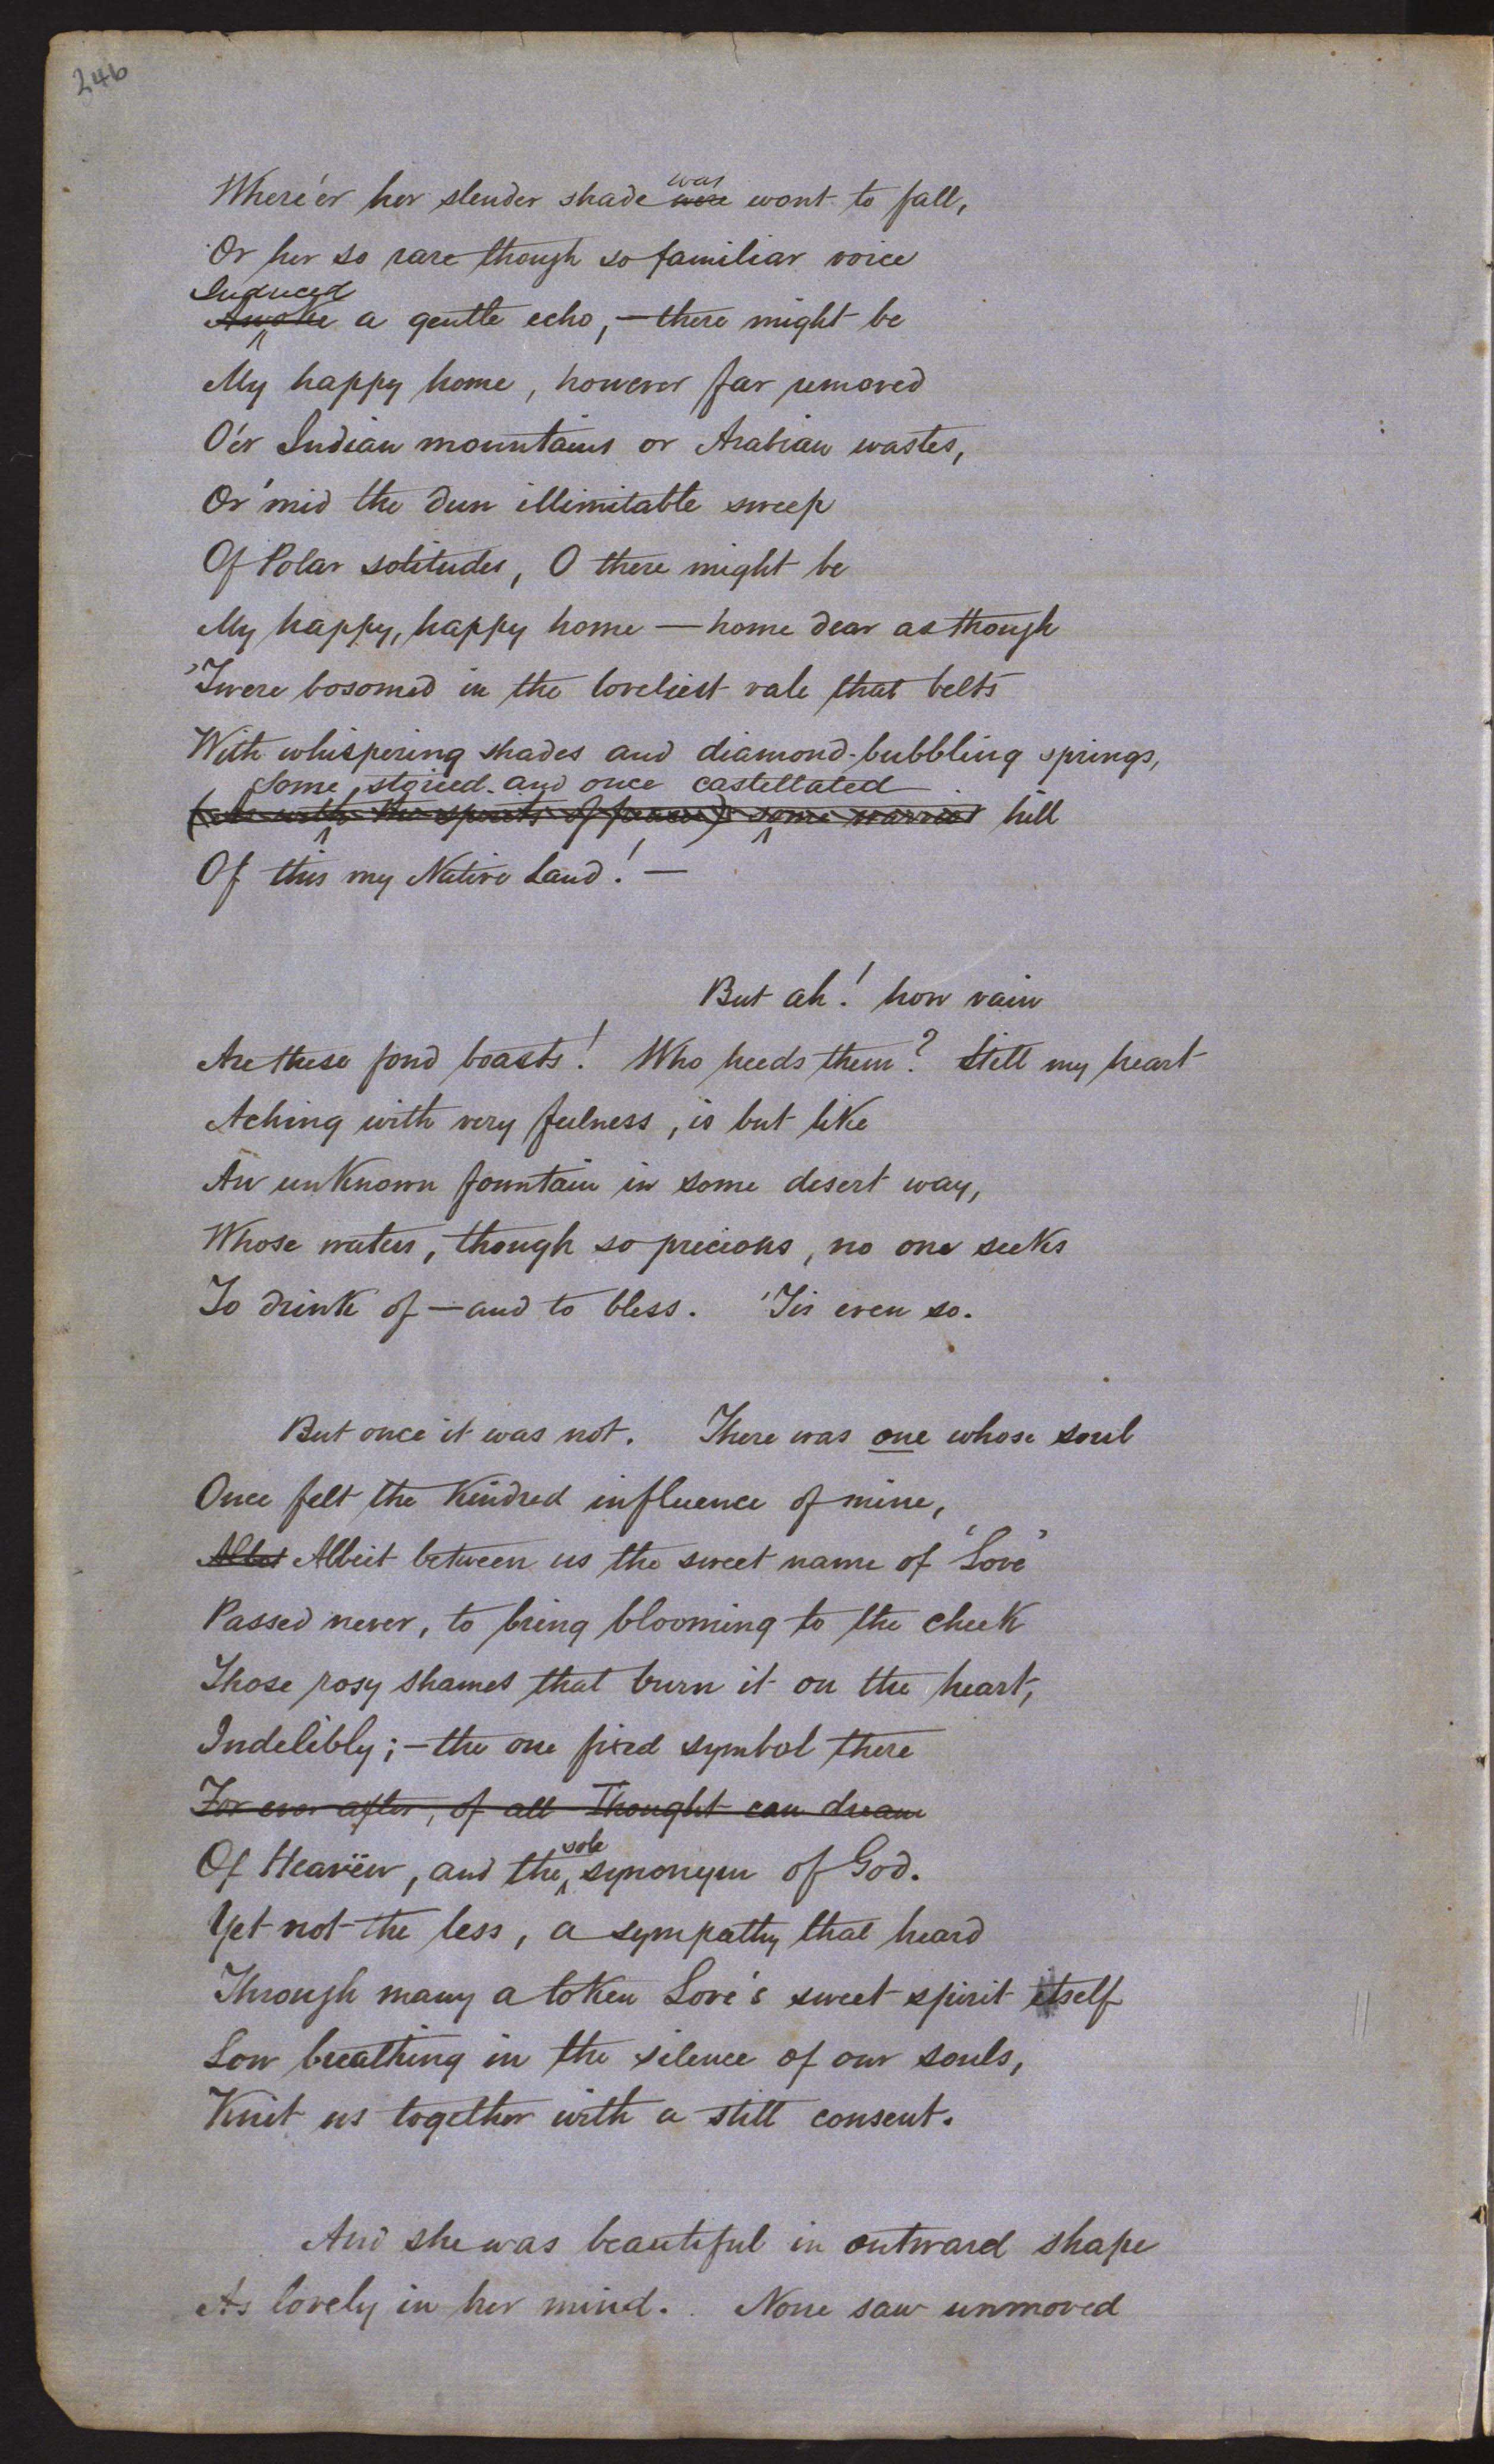 246
Where'er her slender shade was were wont to fall,
Or her so rare though so familiar voice
Induced
Awoke a gentle echo,—there might be
My happy home, however far removed
O'er Indian mountains or Arabian wastes,
Or 'mid the dun illimitable sweep
Of Polar solitudes, O there might be
My happy, happy home — home dear as though
'Twere bosomed in the loveliest vale that belts
With whispering shades and diamond-bubbling springs,
Some storied and once castellated
(As with the spirits of peace) some warrior hill
Of this my Native Land! —
But ah! how vain
Are these fond boasts! Who heeds them? Still my heart
Aching with very fulness, is but like
An unknown fountain in some desert way,
Whose waters, though so precious, no one seeks
To drink of — and to bless. 'Tis even so.
But once it was not. There was one whose soul
Once felt the kindred influence of mine,
Albeit between us the sweet name of 'Love'
Passed never, to bring blooming to the cheek
Those rosy shames that burn it on the heart,
Indelibly;—the one fixed symbol there
For ever after, of all Thought can dream
Of Heaven, and the sole synonym of God.
Yet not the less, a sympathy that heard
Through many a token Love's sweet spirit itself
Low breathing in the silence of our souls,
Knit us together with a still consent.
And she was beautiful in outward shape
As lovely in her mind. None saw unmoved